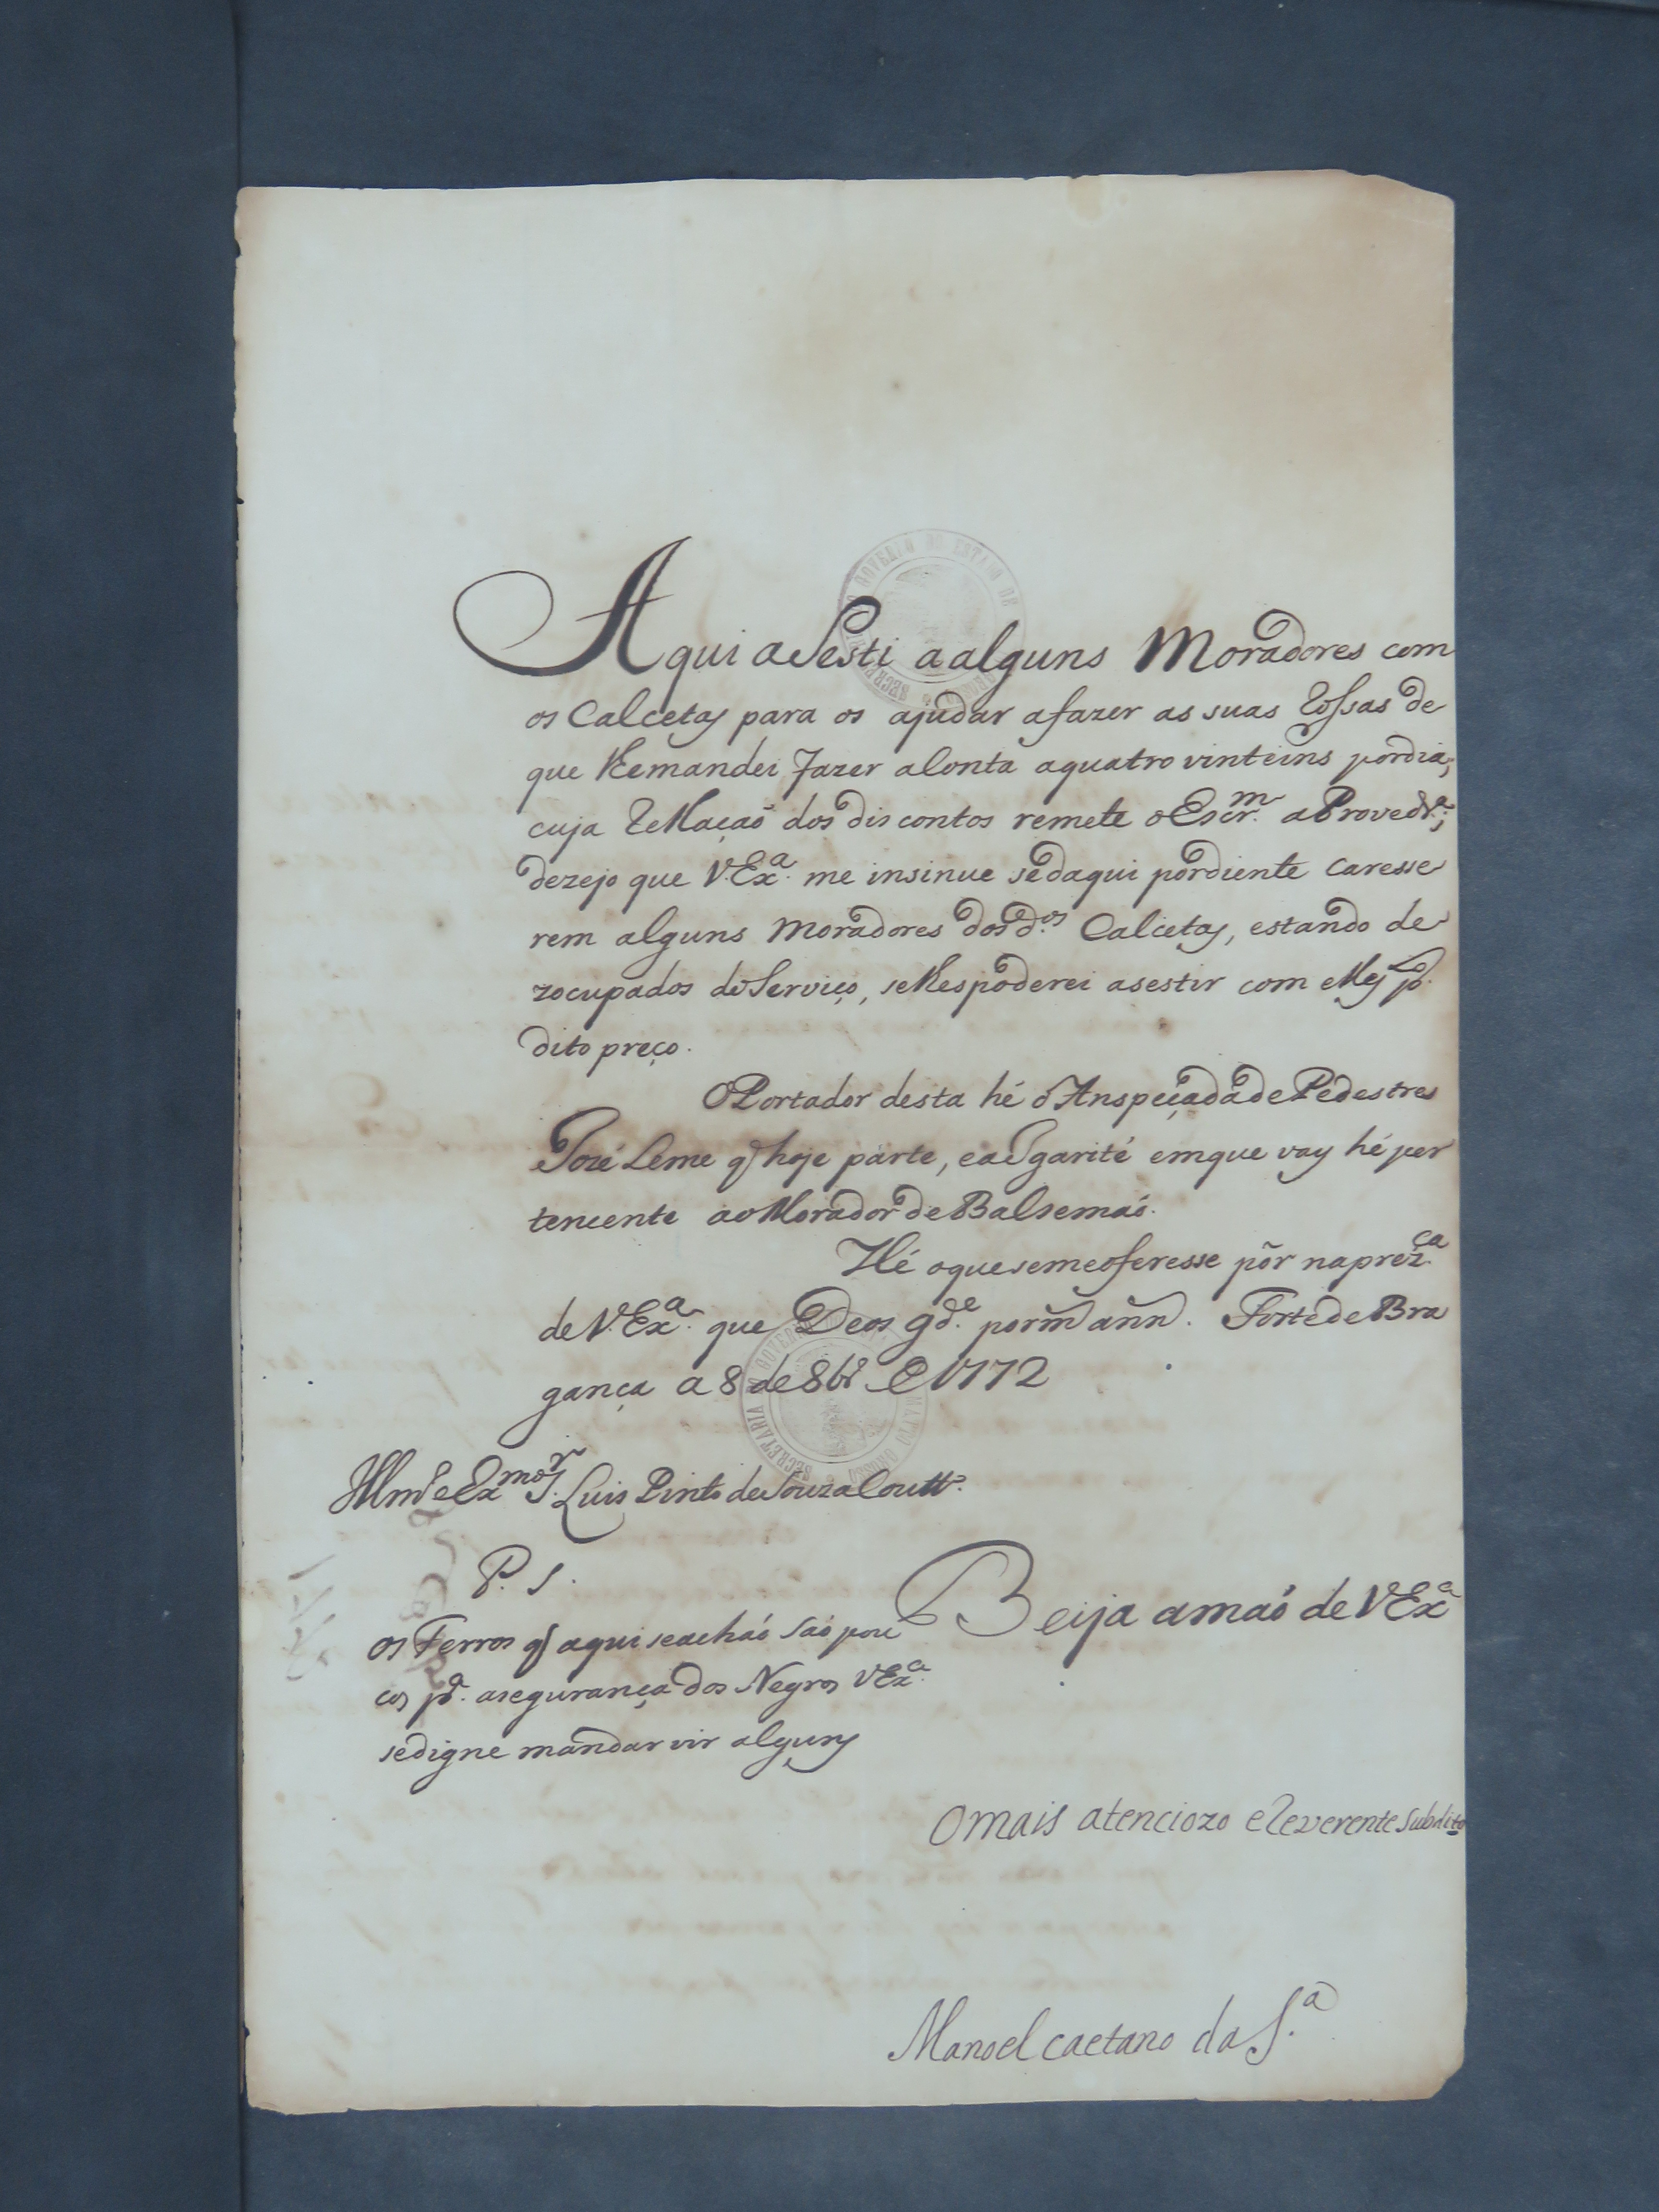 Aqui aSesti a alguns Moradores com
os Calcetas para os ajudar afazer as suas Rossas de
que lhe mandei fazer aConta aquatro vinteins pordia,
cuja Rellaçaõ dos discontos remete oEscr.m aProvedr.a;
dezejo que V.Ex.a me insinue sedaqui pordiente caresse
rem alguns Moradores dosd.os Calcetas, estando de
zocupados doServiço, selhespoderei asestir com elles p.lo
dito preço.
OPortador desta hé oAnspeçadadePedestres
Jozé Leme q hoje parte, eaIgarité emque vay hé per
tencente aoMorador deBalsemaõ.
Hé oquesemeoferesse pôr naprez.ca
deV.Ex.a que Deos gd.e porm ann. FortedeBra
gança a 8 de 8br.o de 1772
Illm.o eEx.mo S.r Luis Pinto deSouzaCoutt.o
P. S.
os Ferros q aqui seachaõ Saõ pou
cos p.a asegurança dos Negros VEx.a
sedigne mandar vir alguns
Beija amaõ de VEx.a
Omais atenciozo eReverente Subdito
Manoel caetano da S.a
SECRETARIA DO GOVERNO DO ESTADO DE MATTO GROSSO